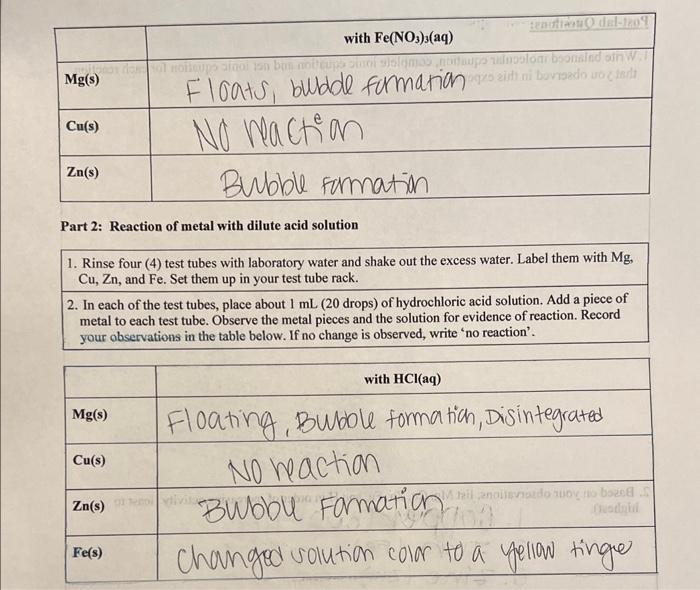 with Fe(NO₃)₃(aq)
Mg(s) Floats, bubble formation
Cu(s) No reaction
Zn(s) Bubble formation
Part 2: Reaction of metal with dilute acid solution
1. Rinse four (4) test tubes with laboratory water and shake out the excess water. Label them with Mg,
Cu, Zn, and Fe. Set them up in your test tube rack.
2. In each of the test tubes, place about 1 mL (20 drops) of hydrochloric acid solution. Add a piece of
metal to each test tube. Observe the metal pieces and the solution for evidence of reaction. Record
your observations in the table below. If no change is observed, write ‘no reaction’.
with HCl(aq)
Mg(s) Floating, Bubble formation, Disintegrated
Cu(s) No reaction
Zn(s) Bubble Formation
Fe(s) Changed solution color to a yellow tinge